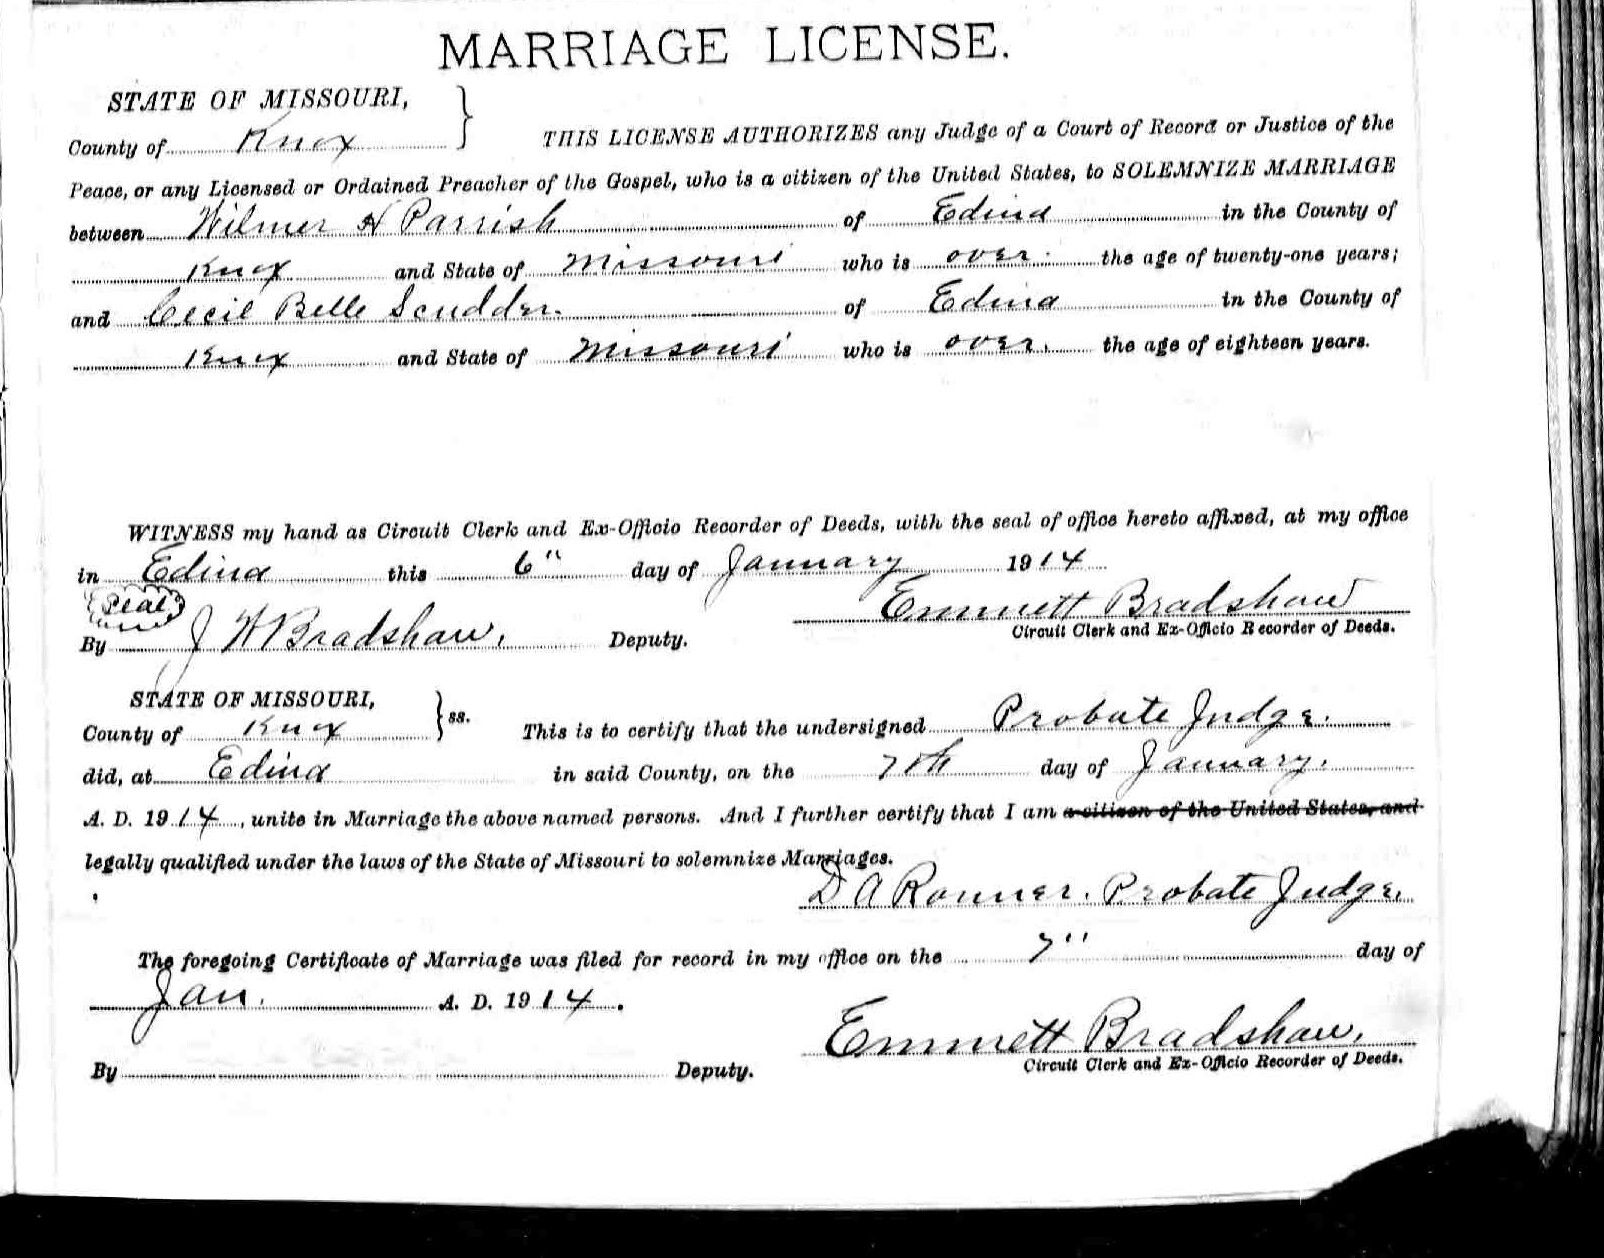 MARRIAGE LICENSE.
STATE OF MISSOURI,
County of Knox } THIS LICENSE AUTHORIZES any Judge of a Court of Record or Justice of the
Peace, or any Licensed or Ordained Preacher of the Gospel, who is a citizen of the United States, to SOLEMNIZE MARRIAGE
between Wilmer H Parrish of Edina in the County of
Knox and State of Missouri who is over the age of twenty-one years;
and Cecil Belle Scudder. of Edina in the County of
Knox and State of Missouri who is over. the age of eighteen years.
WITNESS my hand as Circuit Clerk and Ex-Officio Recorder of Deeds, with the seal of office hereto affixed, at my office
in Edina this 6" day of January 1914
Seal Emmett Bradshaw
Circuit Clerk and Ex-Officio Recorder of Deeds.
By J W Bradshaw, Deputy.
STATE OF MISSOURI,
County of Knox } ss. This is to certify that the undersigned Probate Judge.
did, at Edina in said County, on the 7th day of January.
A. D. 1914, unite in Marriage the above named persons. And I further certify that I am a citizen of the United States, and
legally qualified under the laws of the State of Missouri to solemnize Marriages.
D A Ronner. Probate Judge.
The foregoing Certificate of Marriage was filed for record in my office on the 7" day of
Jan. A. D. 1914.
Emmett Bradshaw,
Circuit Clerk and Ex-Officio Recorder of Deeds.
By Deputy.